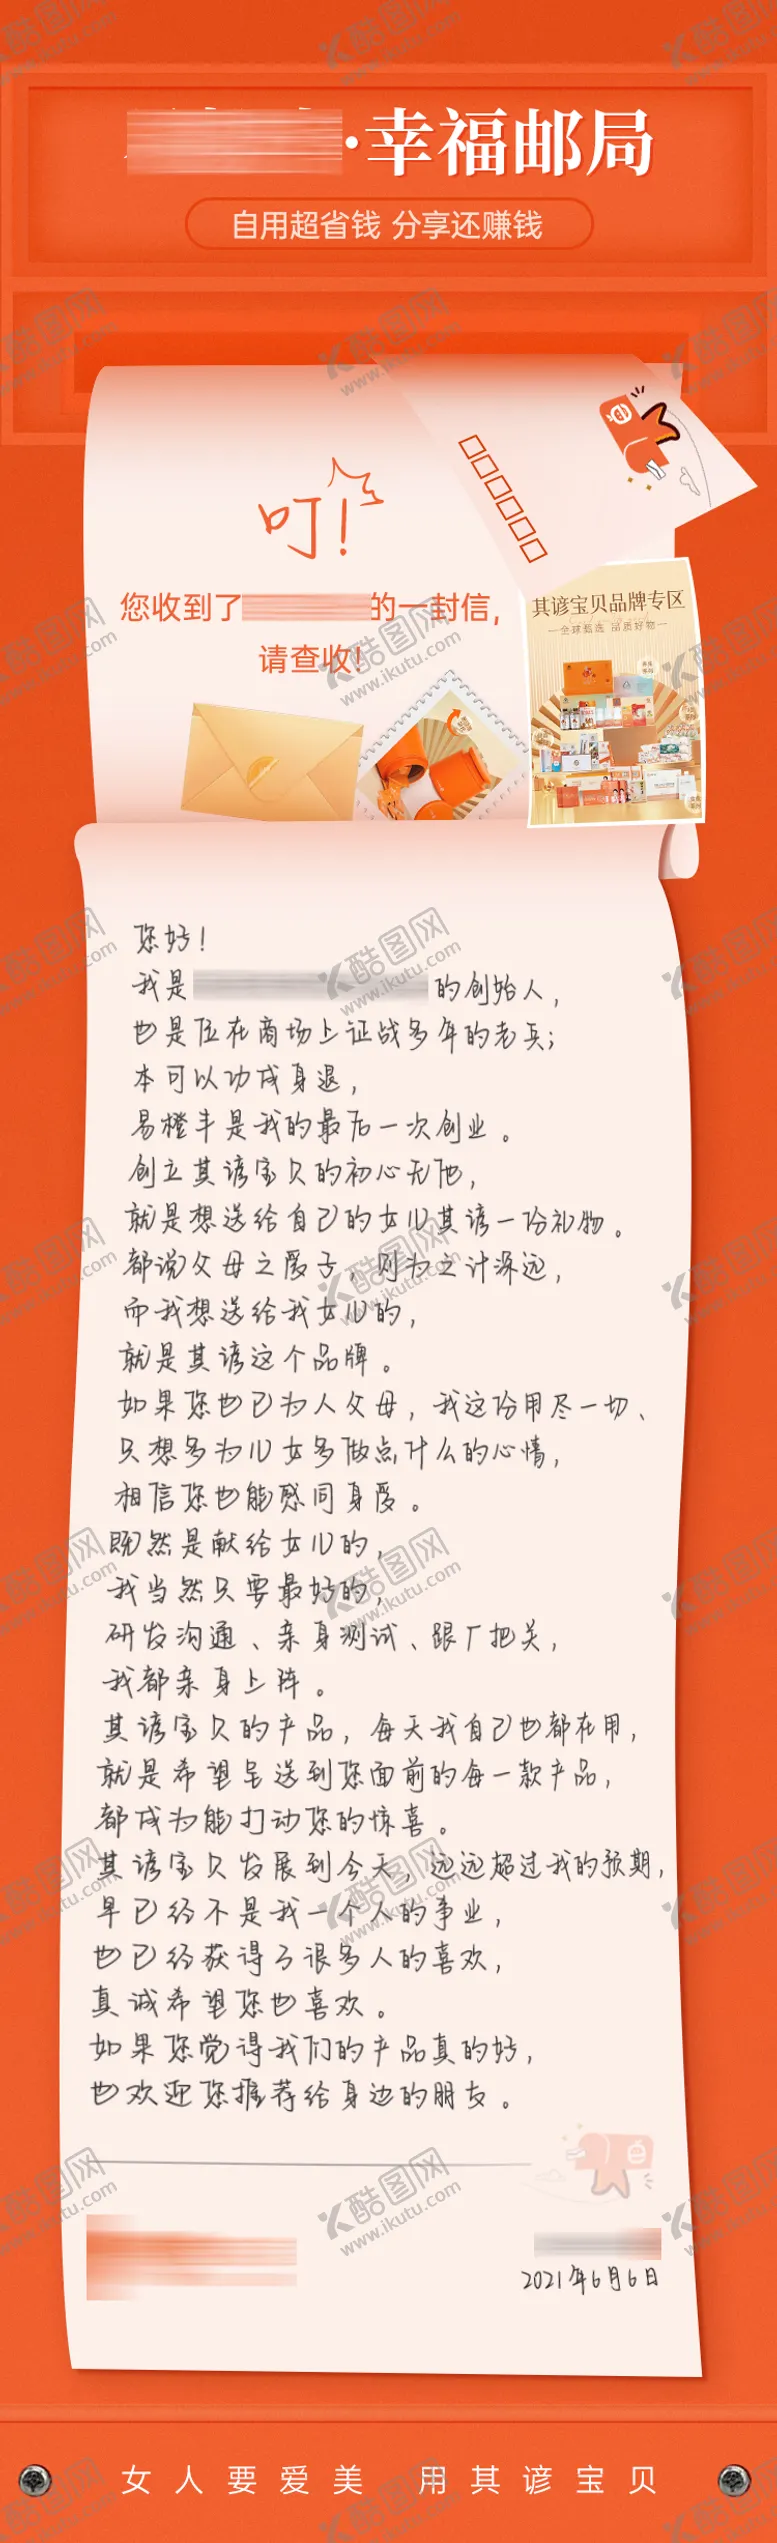 ·幸福邮局
自用超省钱 分享还赚钱
叮!
您收到了 的一封信,
请查收!
其谚宝贝品牌专区
全球甄选 品质好物
您好!
我是 的创始人,
也是伍在商场上征战多年的老兵;
本可以功成身退,
易橙丰是我的最后一次创业。
创立其谚宝贝的初心无他,
就是想送给自己的女儿其谚一份礼物。
都说父母之爱子,则为之计深远,
而我想送给我女儿的,
就是其谚这个品牌。
如果您也已为人父母,我这份用尽一切、
只想多为儿女多做点什么的心情,
相信您也能感同身受。
既然是献给女儿的,
我当然只要最好的,
研发沟通、亲身测试、跟厂把关,
我都亲身上阵。
其谚宝贝的产品,每天我自己也都在用,
就是希望呈送到您面前的每一款产品,
都成为能打动您的惊喜。
其谚宝贝发展到今天,远远超过我的预期,
早已经不是我一个人的事业,
也已经获得了很多人的喜欢,
真诚希望您也喜欢。
如果您觉得我们的产品真的好,
也欢迎您推荐给身边的朋友。
2021年6月6日
女人要爱美 用其谚宝贝
酷图网
www.ikutu.com